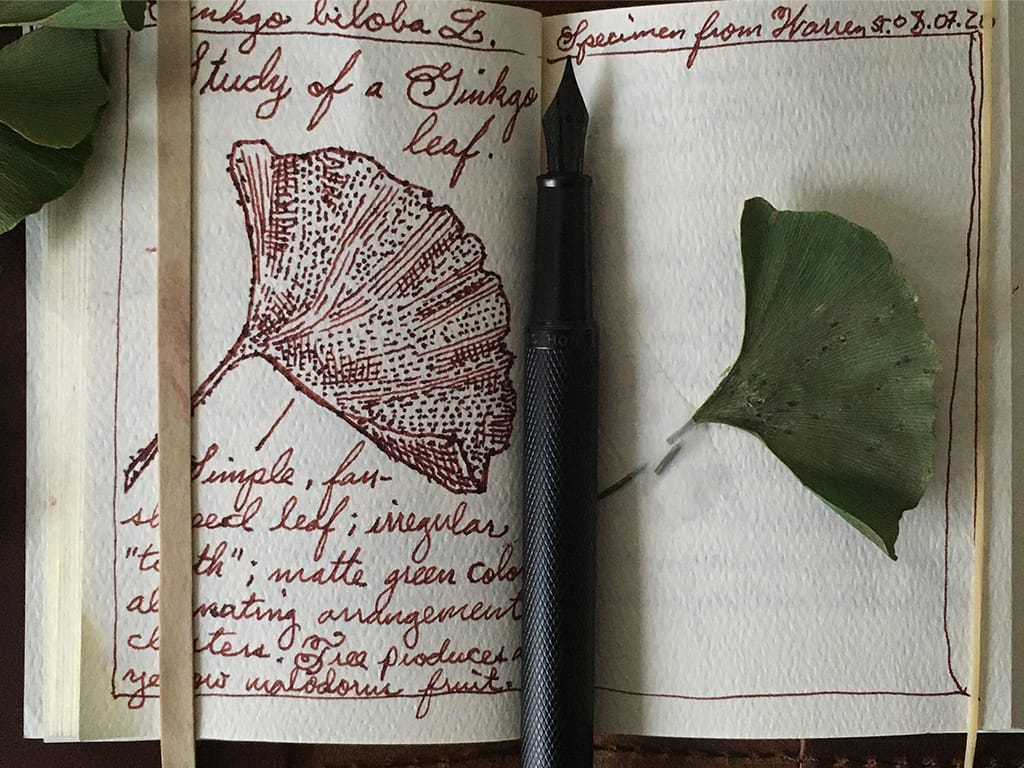 Ginkgo biloba L.
Study of a Ginkgo
leaf.
Simple, fan-
shaped leaf; irregular
"teeth"; matte green color
alternating arrangement
clusters. Tree produces a
yellow malodorus fruit.
Specimen from Warren St. 08.07.20
HON